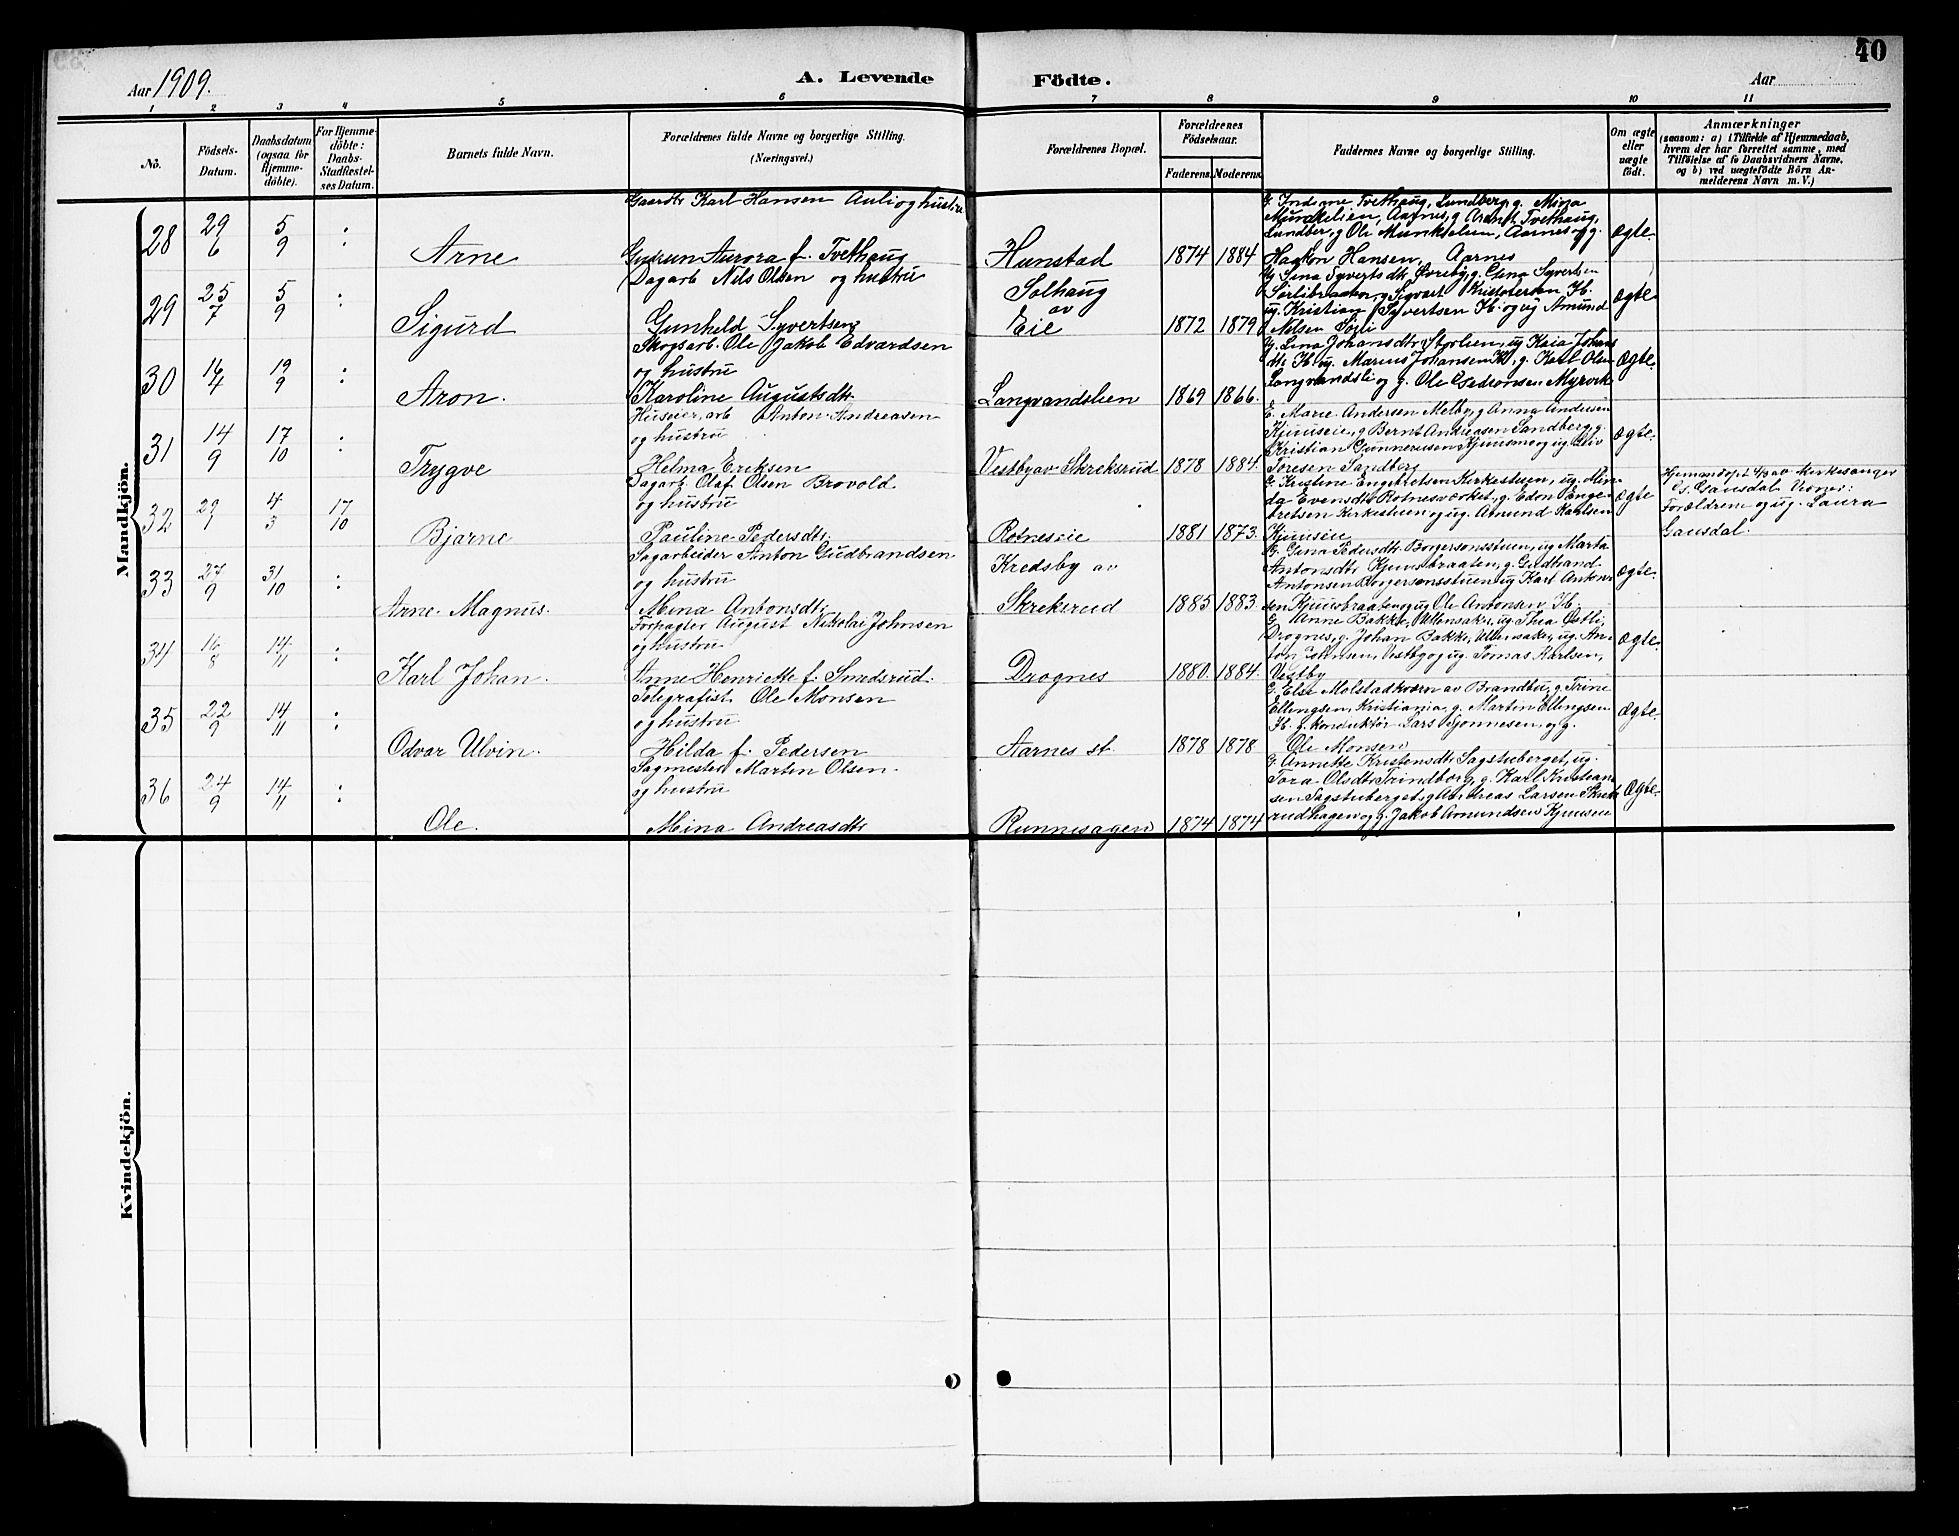 40
Aar 1909.
A. Levende
Födte.
Aar
1 2 3 4 5 6 7 8 9 10 11
No.
Födsels-Datum.
Daabsdatum (ogsaa for Hjemme-döbte).
For Hjemme-döbte: Daabs-Stadfæstel-ses Datum.
Barnets fulde Navn.
Forældrenes fulde Navne og borgerlige Stilling. (Næringsvei.)
Forældrenes Bopæl.
Forældrenes Födselsaar.
Faderens. Moderens.
Faddernes Navne og borgerlige Stilling.
Om ægte eller uægte födt.
Anmærkninger
(saasom: a) i Tilfælde af Hjemmedaab,
hvem der har forrettet samme, med
Tilföielse af to Daabsvidners Navne,
og b) ved uægtefödte Börn An-
melderens Navn m. V.)
Mandkjön.
28 29/6 5/9 : Arne
Gaardbr Karl Hansen Auli og hustru
Gudrun Aurora f. Tvethaug
Hunstad 1874 1884
Tvethaug, Lundberg, g. Mina
Munkelien, Aarnes, g Arent Tvethaug,
Lundber, g Ole Munkelien, Aarnes og g.
Haakon Hansen, Aarnes
Ægte.
29 25/7 5/9 : Sigurd
Dagarb Nils Olsen og hustru
Gunhild Syvertsen
Solhaug
av
Eie 1872 1879
Sörlibraaten, g Sigvart Kristofersen Kb.
ug. Kristian Syvertsen Kb. og ug Amund
Nelsen Sörli
Ægte
30 16/4 19/9 : Aron.
Skogsarb. Ole Jakob Edvardsen
og hustru
Karoline Augustsdtr.
Langvandslien 1869 1866.
Marius Johansen Kb, g. Karl Olsen
Langvandsli og g. Ole Myrvik
Ægte.
31 14/9 17/10 : Trygve
Huseier, arb Anton Andreasen
og hustru
Helma Eriksen
Vestby av Skreksrud 1878 1884.
E. Marie Andersen Melby, g Anna Andersen
Kjuuseie, g Bernt Andreasen Sandberg, g.
Kristian Gunnerusen Kjuusmo og ug
Toresen Sandberg
Ægte.
32 29/1 4/3 17/10 Bjarne
Dagarb. Olaf Olsen Brovold
og hustru
Pauline Pedersdtr.
Rotneseie 1881 1873.
G Kristine Engebretsen Kirkestuen, ug. Min-
da Evensdtr Rotnesværket, g. Edon Enge-
bretsen Kirkestuen og ug. Amund Karlsen
Kjuuseie
Ægte
Hjemmedöpt 4/3 av kirkesanger
Gausdal. Vidner:
Forældrene og ug. Laura
Gausdal.
33 27/9 31/10 : Arne Magnus.
Sagarbeider Anton Gudbrandsen
og hustru
Mina Antonsdtr.
Kredsby av
Skreksrud 1885 1883.
G. Gina Pedersdtr. Borgersonsstuen, ug Marta
Antonsdtr Kjuusbraaten, g. Gudbrand
Antonsen Borgersonsstuen ug Karl Anton-
sen Kjuusbraaten og ug Ole Antonsen Kb.
Ægte.
34 16/8 14/11 : Karl Johan.
Forpagter August Nikolai Johnsen
og hustru
Anne Henriette f. Smedsrud.
Drognes 1880. 1884.
G Anne Bakke, Ullensaker, ug. Thea Östli,
Drognes, g. Johan Bakke, Ullensaker, ug. An-
ton Johnsen, Vestby og ug. Tomas Karlsen,
Vestby
Ægte.
35 22/9 14/11 : Odvar Ulvin.
Telegrafist Ole Monsen
og hustru
Hilda f. Pedersen
Aarnes st. 1878 1878
G. Else Molstadkværn av Brandbu, g. Trine
Ellingsen, Kristiania, g. Martin Ellingsen
Kb. g. konduktör Lars Sjonnesen, og g.
Ole Monsen
Ægte.
36 24/9 14/11 : Ole.
Sagmester Marten Olsen
og hustru
Mina Andreasdtr
Runnesagen 1874 1874
G. Annette Kristensdtr Sagstuberget, ug.
Tora Olsdtr Trindborg, g. Karl Kristian-
sen Sagstuberget, g Andreas Larsen Skreks-
rudhagen og g. Jakob Amundsen Kjuuseie
Ægte.
Kvindekjön.